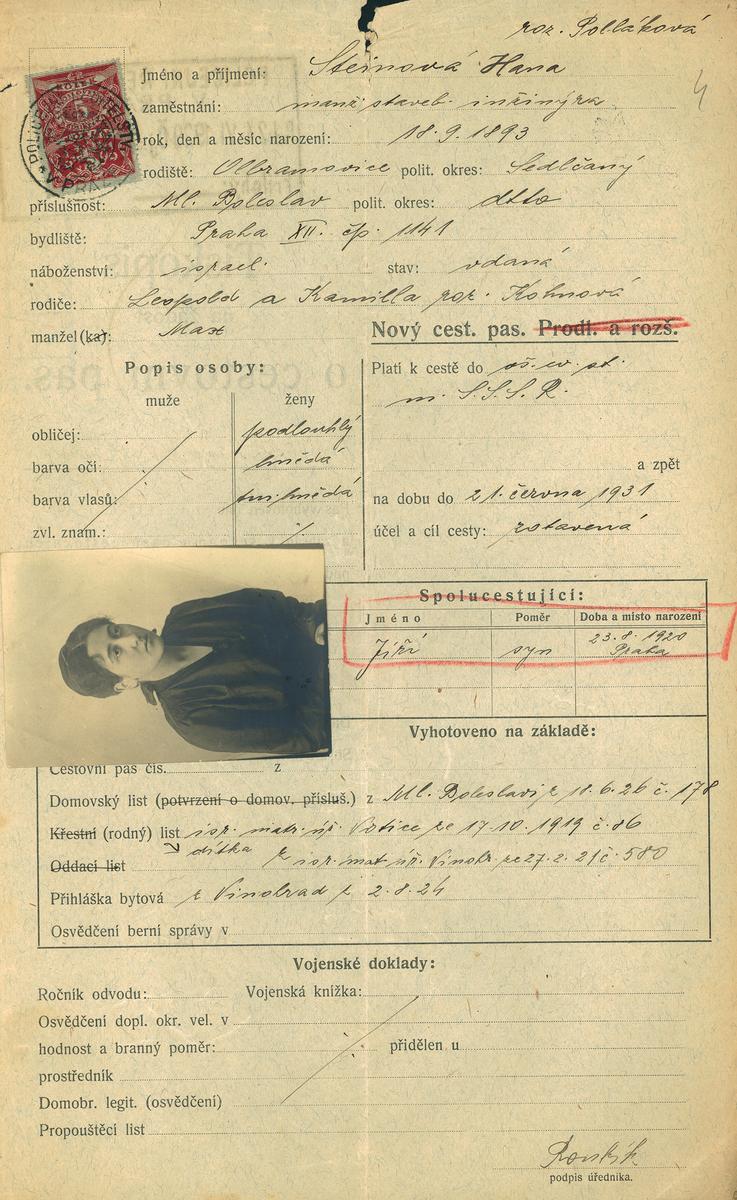 roz. Polláková
Jméno a příjmení: Steinová Hana
zaměstnání: manž. staveb. inžinýra
rok, den a měsíc narození: 18.9.1893
rodiště: Olbramovice polit. okres: Sedlčaný
příslušnost: Ml. Boleslav polit. okres: dtto
bydliště: Praha XII. čp. 1141
náboženství: israel. stav: vdaná
rodiče: Leopold a Kamilla roz. Kohnová
manžel (ka): Max
Nový cest. pas. Prodl. a rozš.
Popis osoby:
muže ženy
obličej: podlouhlý
barva očí: hnědá
barva vlasů: tm. hnědá
zvl. znam.:
Platí k cestě do
m. S.S.S.R.
a zpět
na dobu do 21. června 1931
účel a cíl cesty: zotavená
Spolucestující:
Jméno Poměr Doba a místo narození
Jiří syn 23.8.1920
Praha
Vyhotoveno na základě:
Cestovní pas čís. z
Domovský list (potvrzení o domov. přísluš.) z Ml. Boleslavi z 18.6.26 č. 178
Křestní (rodný) list isr. matr. úř. Votice ze 17.10.1919 č. 86
dítka
Oddací list z isr. mat. úř. Vinohr. ze 27.2.21 č. 580
Přihláška bytová z Vinohrad z 2.8.24
Osvědčení berní správy v
Vojenské doklady:
Ročník odvodu: Vojenská knížka:
Osvědčení dopl. okr. vel. v
hodnost a branný poměr: přidělen u
prostředník
Domobr. legit. (osvědčení)
Propouštěcí list
podpis úředníka.